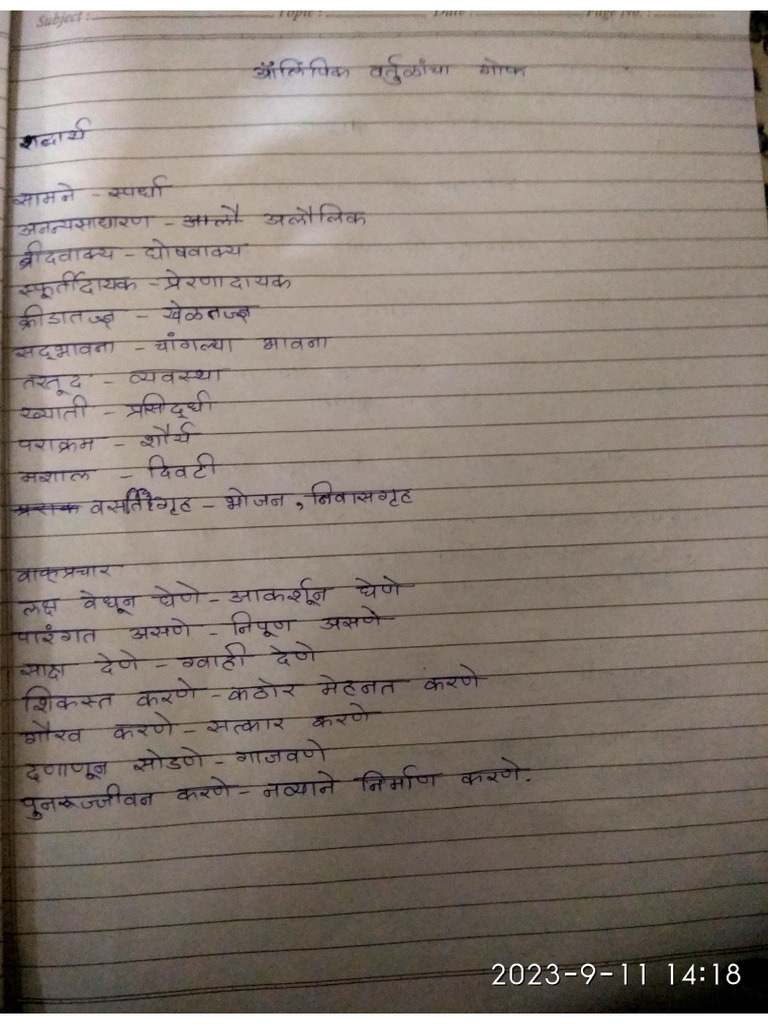 Subject : Topic : Date : Page No. :
ऑलिंपिक वर्तुळांचा गोफ
शब्दार्थ
सामने - स्पर्धा
अनन्यसाधारण - अलौकिक
ब्रीदवाक्य - घोषवाक्य
स्फूर्तीदायक - प्रेरणादायक
क्रीडातज्ज्ञ - खेळतज्ज्ञ
सद्भावना - चांगल्या भावना
तरतूद - व्यवस्था
ख्याती - प्रसिद्धी
पराक्रम - शौर्य
मशाल - दिवटी
वसतिगृह - भोजन, निवासगृह
वाक्प्रचार
लक्ष वेधून घेणे - आकर्शून घेणे
पारंगत असणे - निपूण असणे
साक्ष देणे - ग्वाही देणे
शिकस्त करणे - कठोर मेहनत करणे
गौरव करणे - सत्कार करणे
दणाणून सोडणे - गाजवणे
पुनरूज्जीवन करणे - नव्याने निर्माण करणे.
2023-9-11 14:18